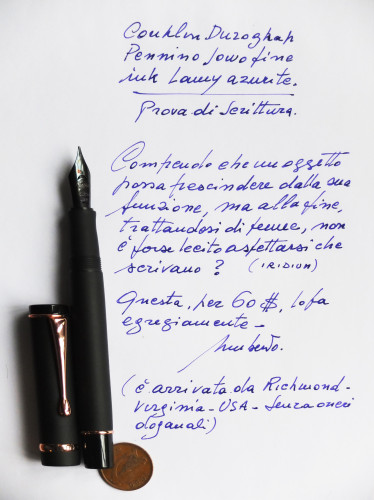 Conklin Duroghap
Pennino Jowo fine
ink Lamy azurite.
Prova di Scrittura.
Comprendo che un oggetto
possa prescindere dalla sua
funzione, ma alla fine,
trattandosi di penne, non
è forse lecito aspettarsi che
scrivano? (IRIDIUM)
Questa, per 60 $, lo fa
egregiamente –
Umberto.
(è arrivata da Richmond –
virginia – USA – Senza oneri
doganali)